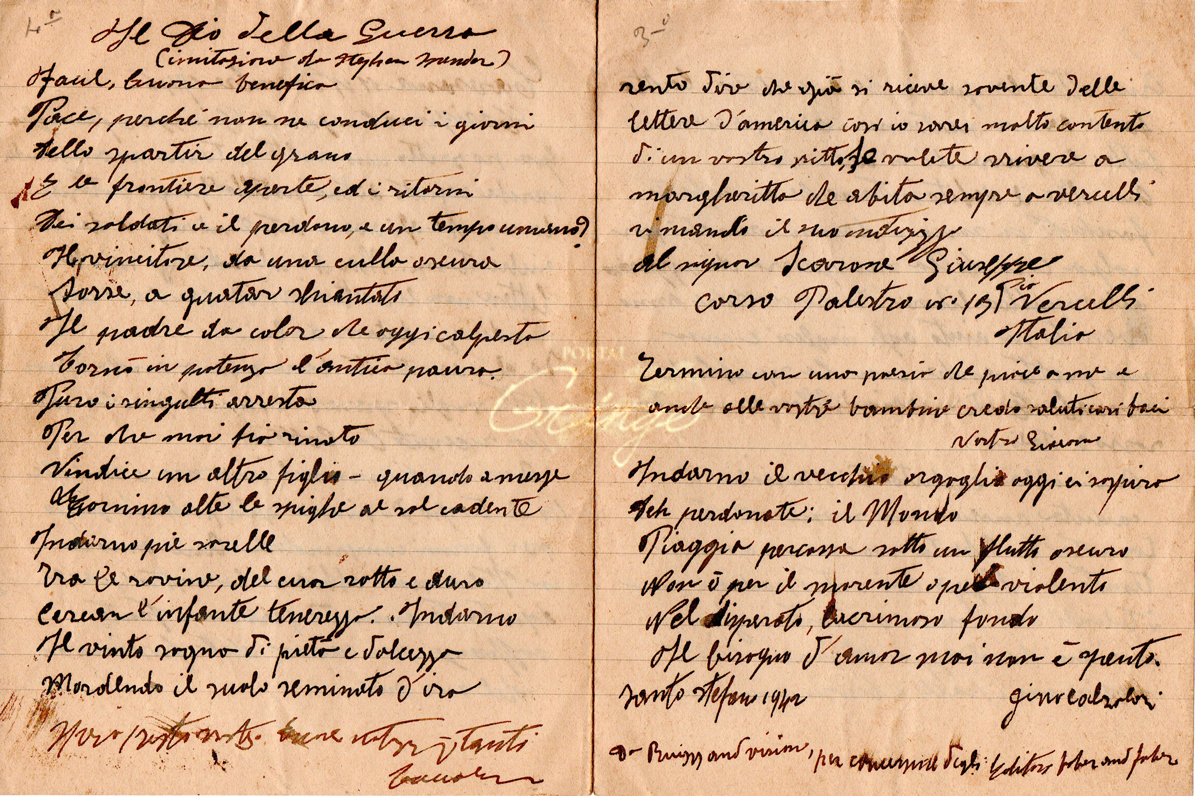 4-a
Il Dio della Guerra
(imitazione da Stephen Spender)
Facil, buona benefica
Pace, perché non ne conduci i giorni
Dello spartir del grano
E le frontiere aperte, ed i ritorni
Dei soldati e il perdono, e un tempo umano?
Il vincitore, da una culla oscura
Sorse, a quatar schiantato
Il padre da color che oggi calpesta
Tornò in potenza l'antica paura.
Puro i singulti arresta
Per che mai fia rinato
Vindice un altro figlio - quando a messe
alte le spighe al sol cadente
Indarno pie sorelle
Tra le rovine, del cuor rotto e duro
Cercan l'infante tenerezza. Indarno
Il vinto sogna di pietà e dolcezza
Mordendo il suolo seminato d'ira
3-a
rento dire che già si riceve sovente delle
lettere d'america così io sarei molto contento
di un vostro ritto, se volete scrivere a
margheritta che abita sempre a vercelli
vi mando il suo indizzo
al signor Scarone Giuseppe
corso Palestro Vercelli
Italia
Termino con una poesia che piace a me e
anche alle vostre bambine credo saluti cari baci
Vostro
Indarno il vecchio orgoglio oggi ci sospira
deh perdonate: il Mondo
Piaggia percossa sotto un flutto oscuro
Non è per il morente o pel violento
Nel disperato, lacrimoso fondo
Il bisogno d'amor mai non è spento.
santo stefano 1942
and vision, per degli Editors faber and faber
PORTAL
Gringo